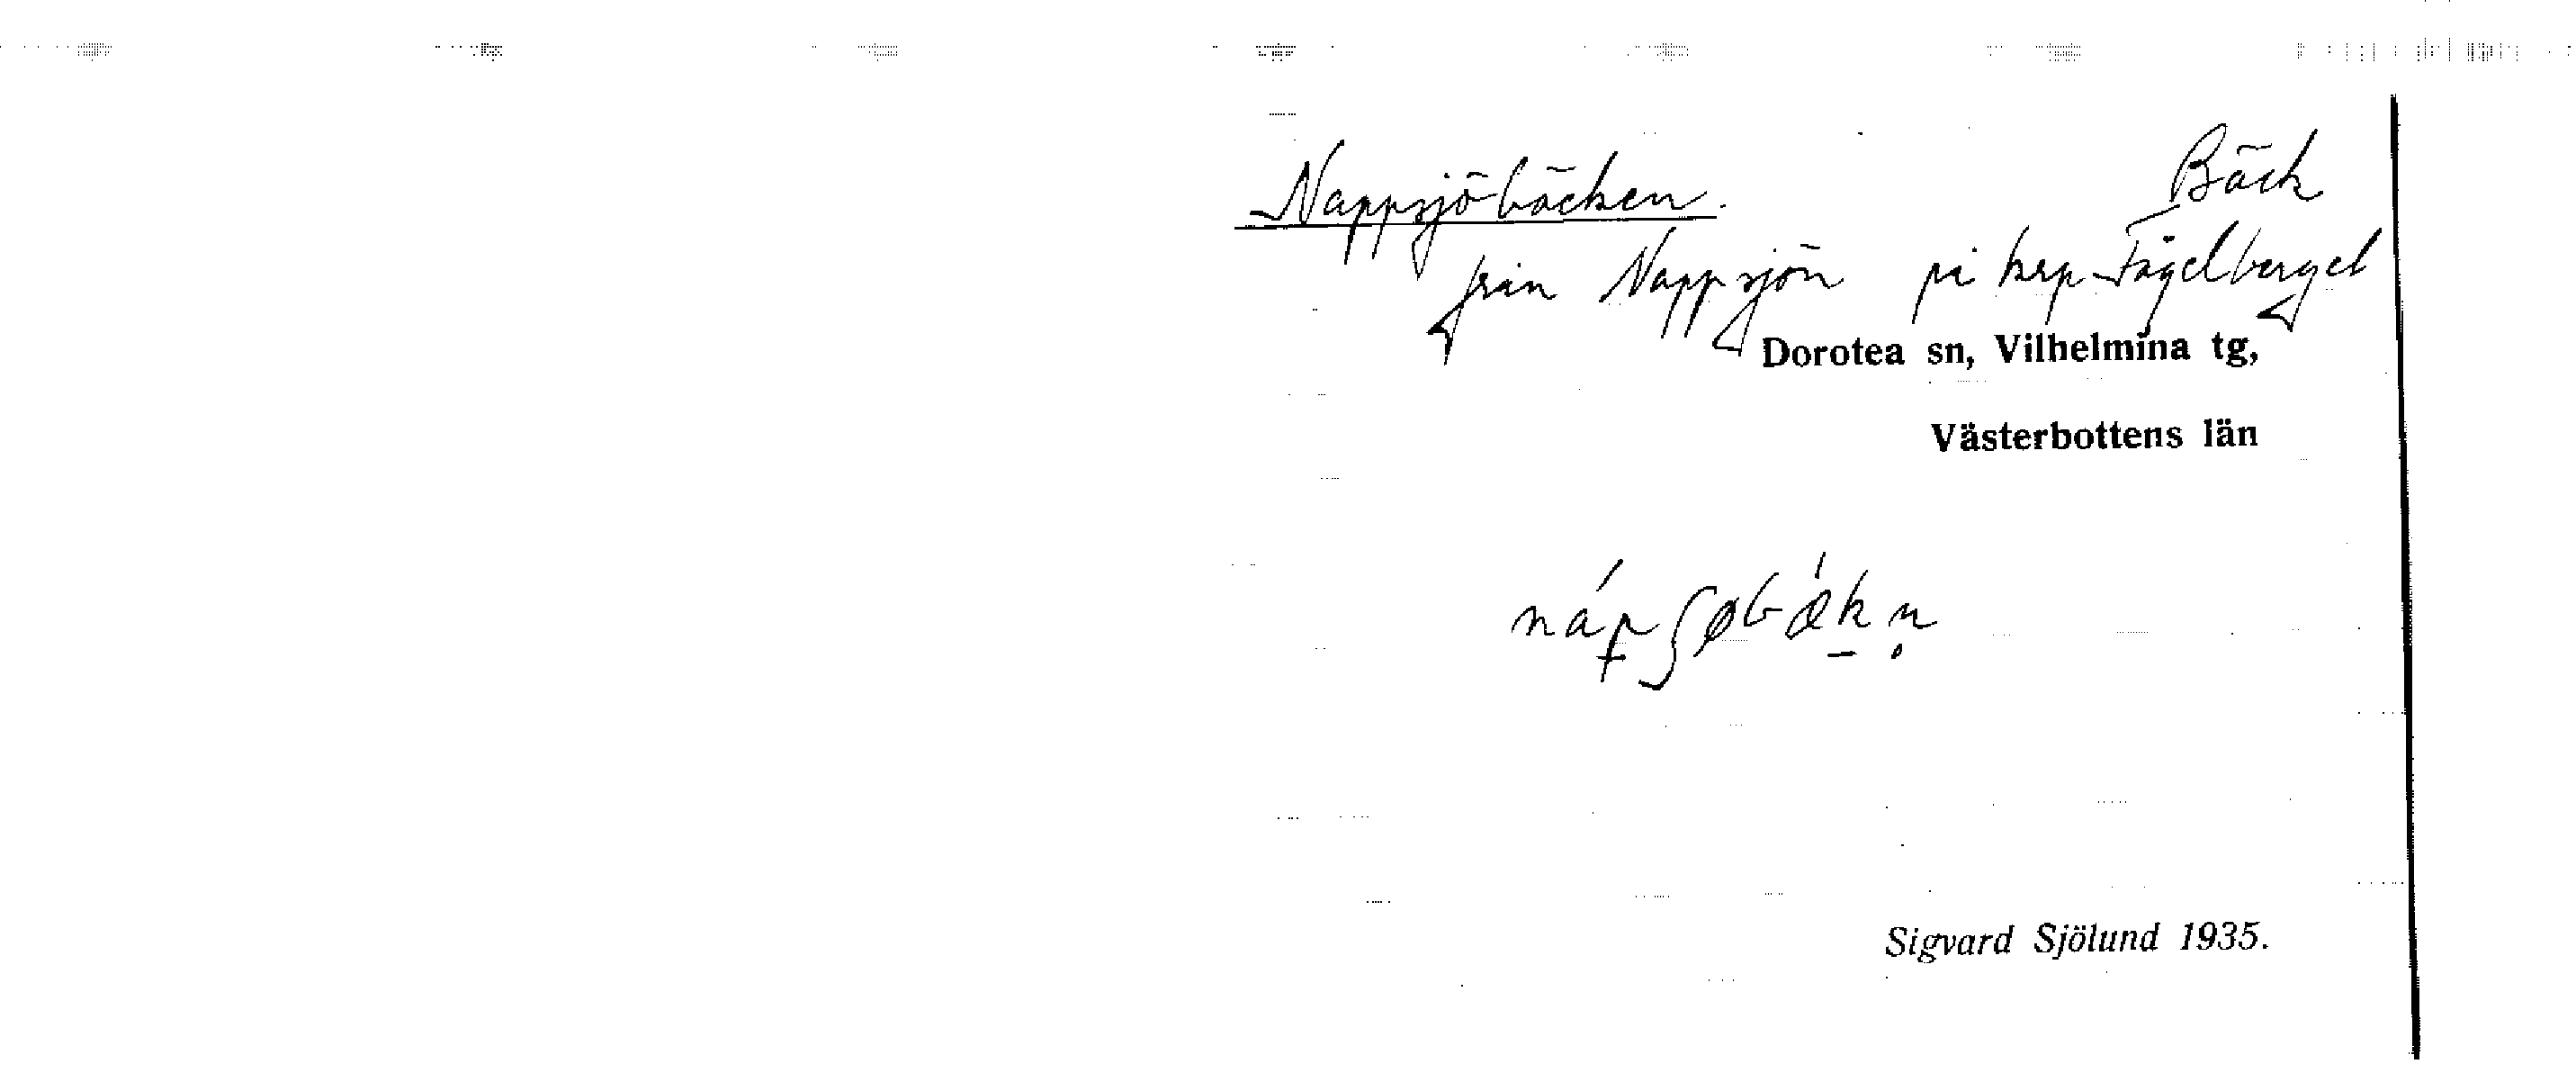 Nappsjöbäcken.
Bäck
från Nappsjön på krp Fågelberget
Dorotea sn, Vilhelmina tg,
Västerbottens län
nápʃøbǽkn̥
Sigvard Sjölund 1935.